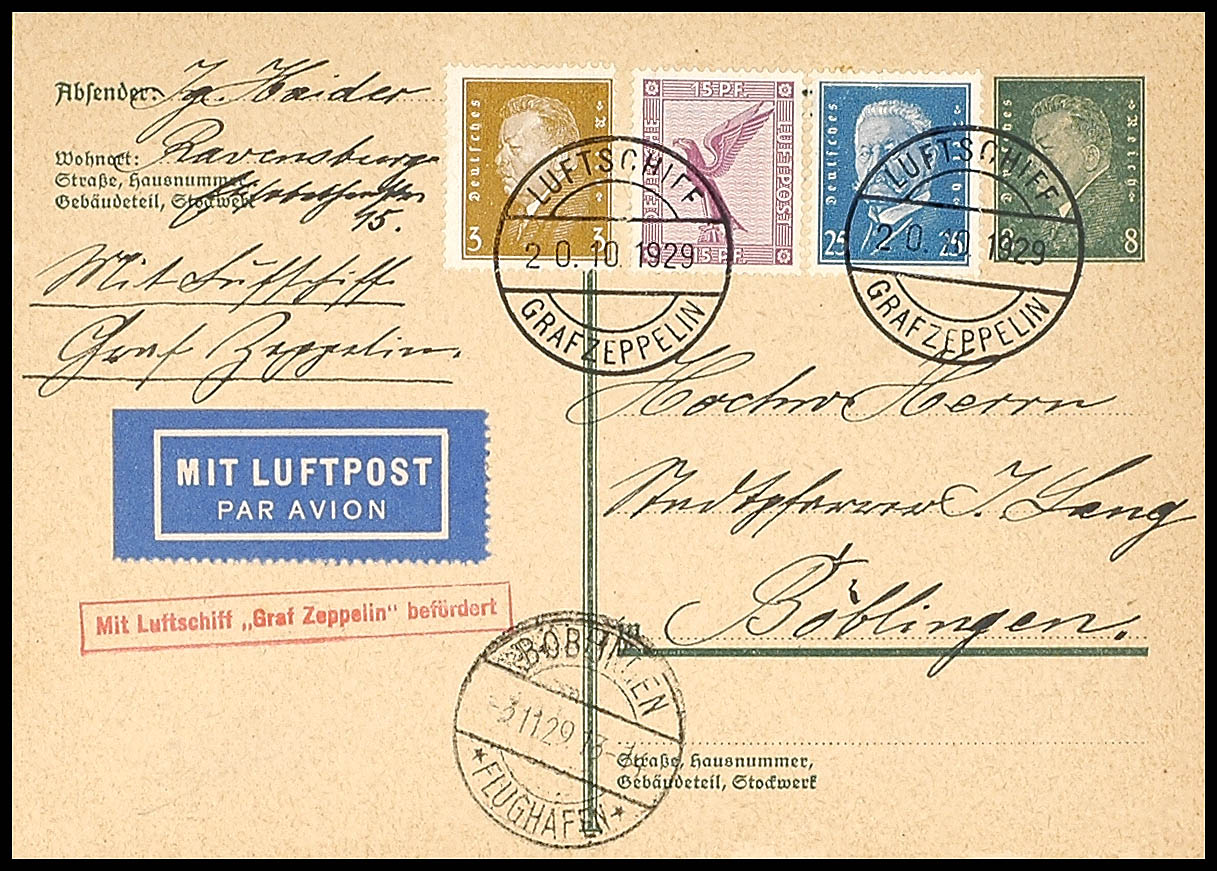 Absender: Jg. Haider
Wohnort: Ravensburg
Straße, Hausnummer
Gebäudeteil, Stockwerk
15.
Mit Luftschiff
Graf Zeppelin.
Deutsches Reich
3 3
15 PF.
DEUTSCHE LUFTPOST
15 PF.
Deutsches Reich
25 25
Deutsches Reich
8 8
LUFTSCHIFF
20.10.1929
GRAF ZEPPELIN
LUFTSCHIFF
20.10.1929
GRAF ZEPPELIN
MIT LUFTPOST
PAR AVION
Mit Luftschiff „Graf Zeppelin" befördert
Herrn
Stadtpfarrer J. Lang
in
Böblingen.
BÖBLINGEN
-3.11.29
*FLUGHAFEN*
Straße, Hausnummer,
Gebäudeteil, Stockwerk